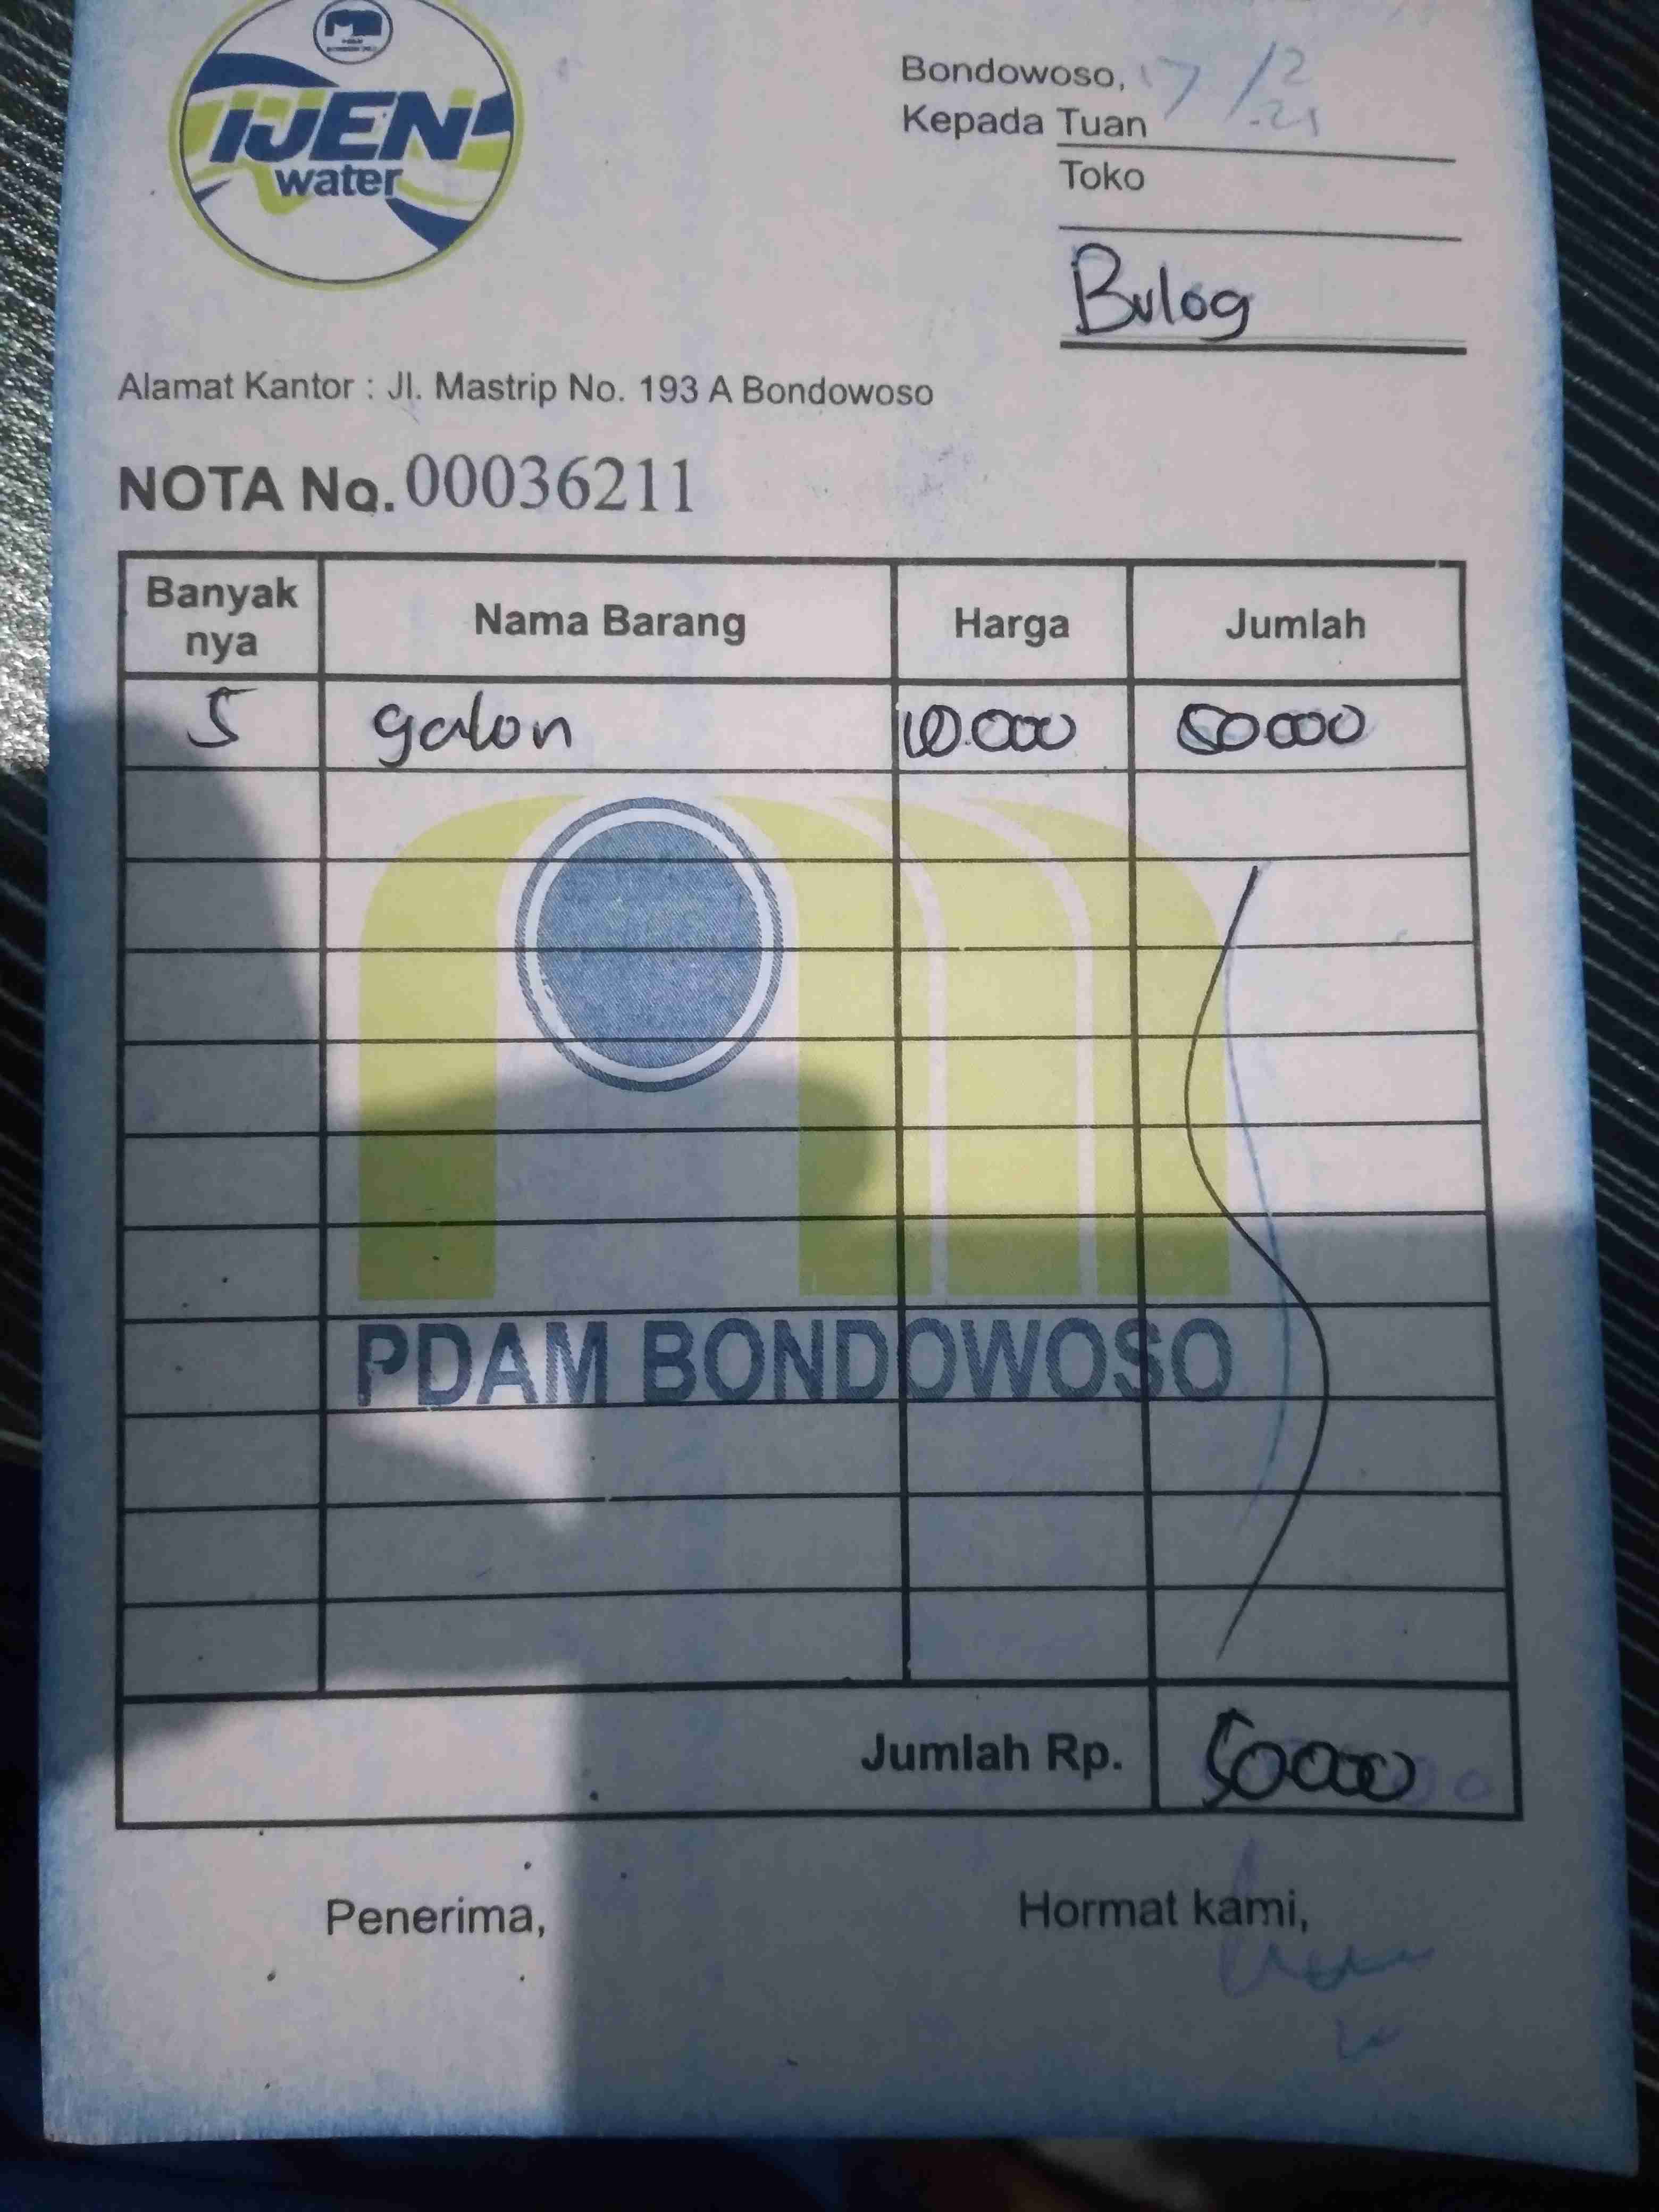 IJEN
water
Bondowoso, 17/2
-21
Kepada Tuan
Toko
Bulog
Alamat Kantor : Jl. Mastrip No. 193 A Bondowoso
NOTA No. 00036211
Banyak nya Nama Barang Harga Jumlah
5 galon 10.000 50000
PDAM BONDOWOSO
Jumlah Rp. 50000
Penerima, Hormat kami,